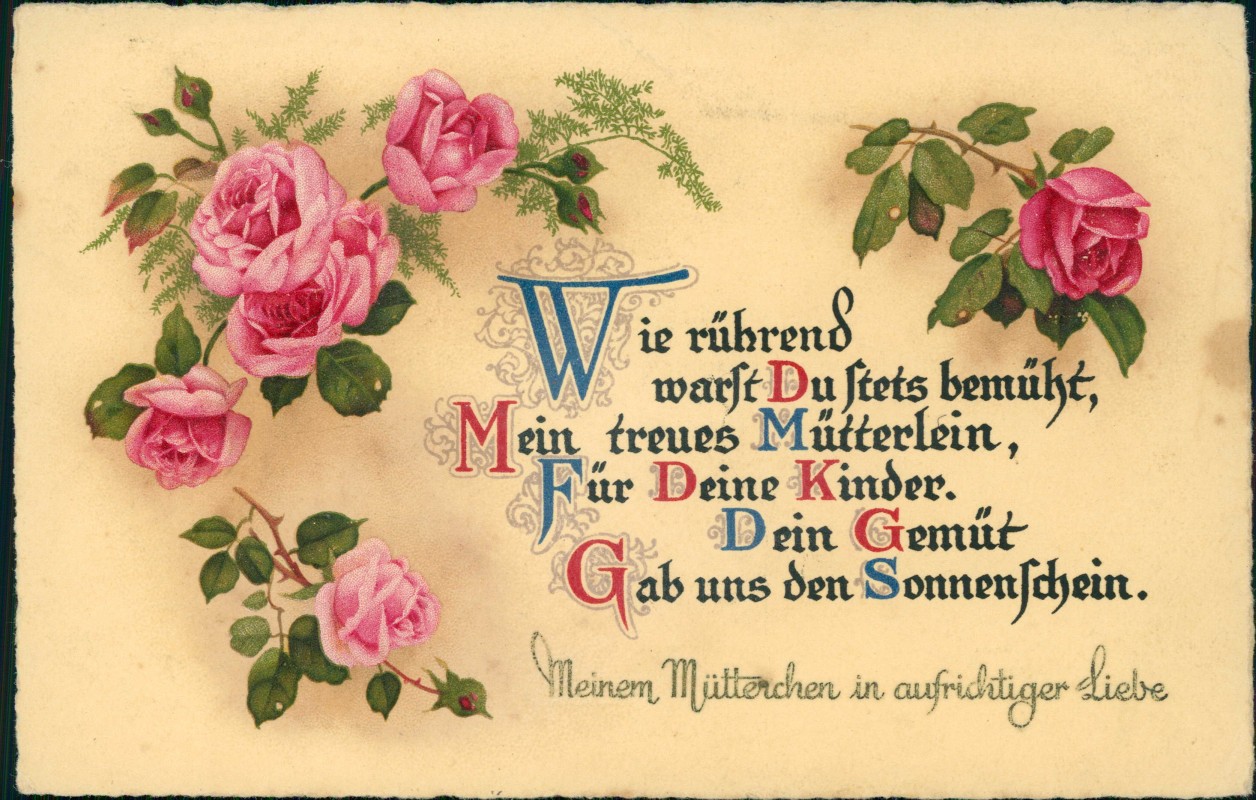 Wie rührend
warst Du stets bemüht,
Mein treues Mütterlein,
Für Deine Kinder.
Dein Gemüt
Gab uns den Sonnenschein.
Meinem Mütterchen in aufrichtiger Liebe